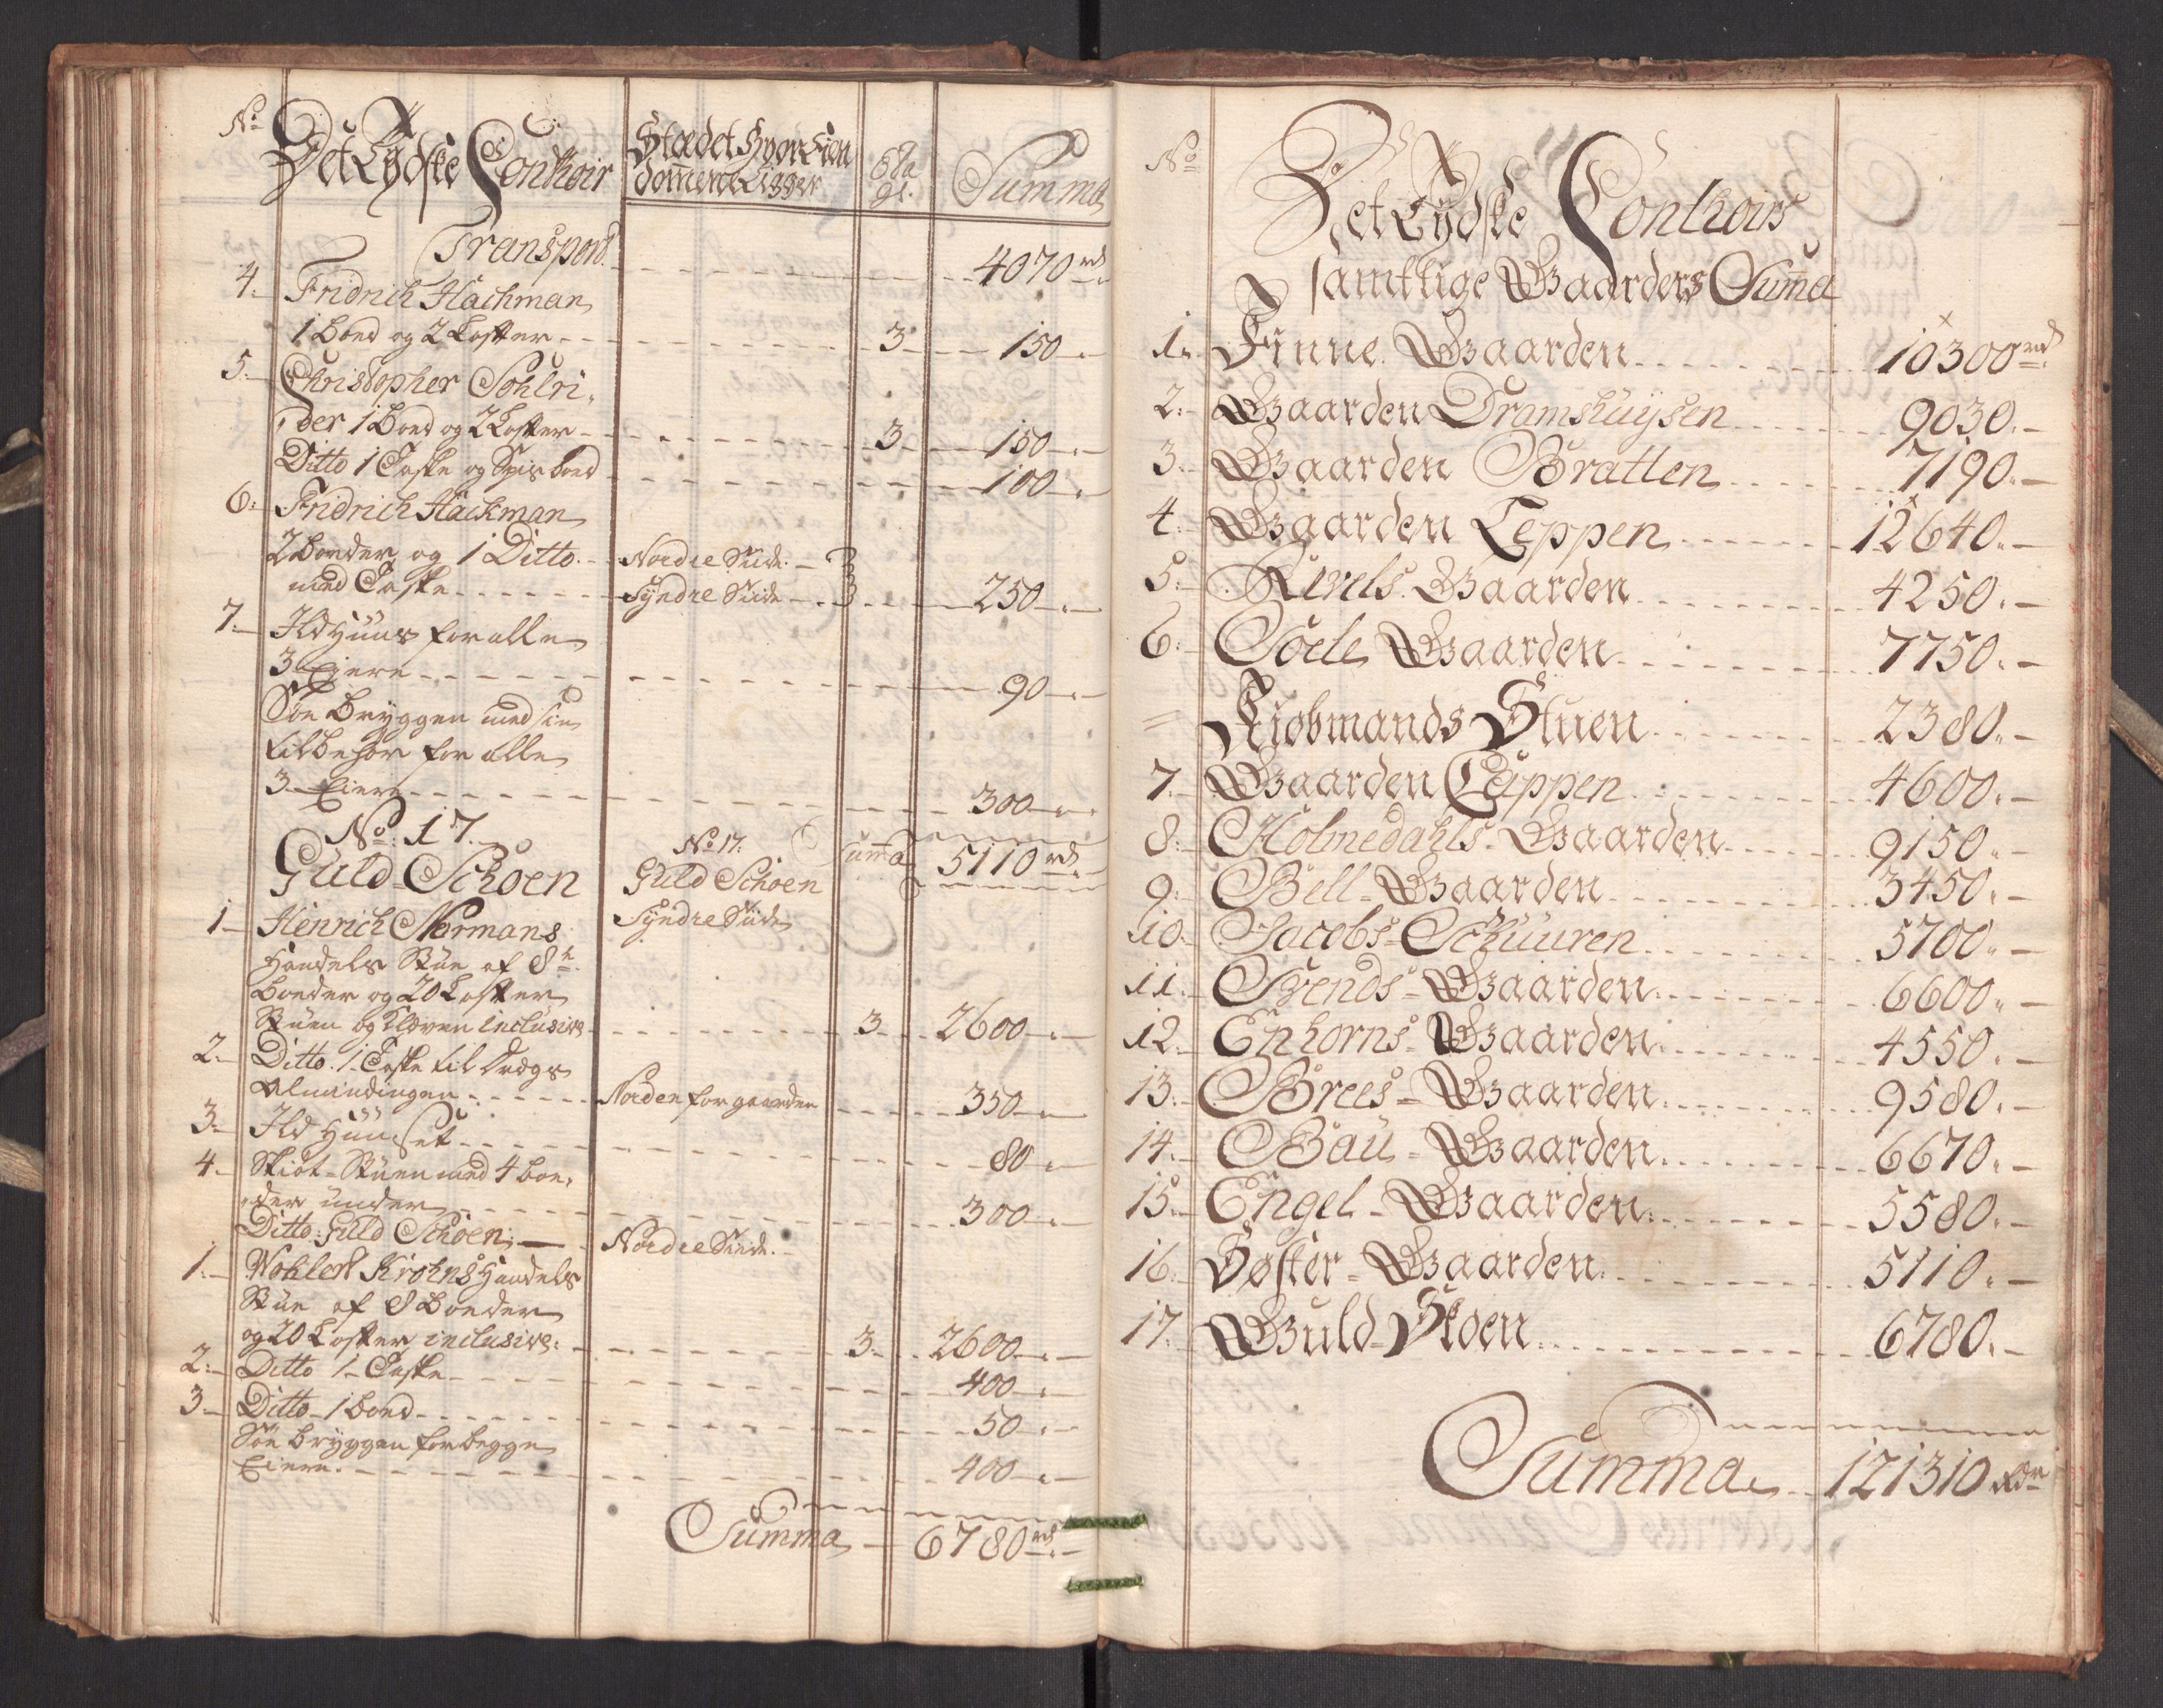 No
Det Tydske Contoir
Stædet hvor Eien
dommene Ligger
Eta
ge.
Summa
Transport 4070 rd
4. Fridrich Hachman
1 Boed og 2 Lofter 3 150
5. Christopher Sohlri,
der 1 Boed og 2 Lofter 3 150
Ditto 1 Eeske og Spis boed 100
6. Fridrich Hackman
2 Boeder og 1 Ditto Nordre Siide 3
med Eeske Syndre Siide 3 250
7. Ildhuus for alle
3 Eiere 90
Søe Bryggen med sin
tilbehør for alle
3 Eiere 300
No 17. No 17. Summa 5110 rd
Guld-Schoen Guld Schoen
1. Henrich Normans Syndre Siide
Handels Stue af 8te
Boeder og 20 Lofter
Stuen og Kloven inclusive 3 2600
2. Ditto 1 Eeske til
Almindingen Norden for gaarden 350
3. Ild Huuset 80
4. Skiøt-Stuen med 4 Boe,
der under 300
Ditto Guld Schoen Nordre Siide
1. Wohlert Krohns Handels
Stue af 8 Boeder
og 20 Lofter inclusive 3 2600
2. Ditto 1 Eeske 400
3. Ditto 1 Boed 50
Søe Bryggen for begge
Eiere 400
Summa 6780 rd
No
Det Tydske Contoirs
samttlige Gaarders Suma
1. Finne Gaarden 10300 rd
2. Gaarden Dramshuysen 9030.
3. Gaarden Bratten 7190.
4. Gaarden Leppen 12640.
5. Revels Gaarden 4250.
6. Soele Gaarden 7750.
Kiøbmands Stuen 2380.
7. Gaarden Cappen 4600.
8. Holmedahls-Gaarden 9150.
9. Bell-Gaarden 3450.
10. Jacobs-Schuuren 5700.
11. Svends-Gaarden 6600.
12. Enhorns-Gaarden 4550.
13. Brees-Gaarden 9580.
14. Bau-Gaarden 6670.
15. Engel-Gaarden 5580.
16. Søster-Gaarden 5110.
17. Guld-Skoen 6780.
Summa 121310 Rdr